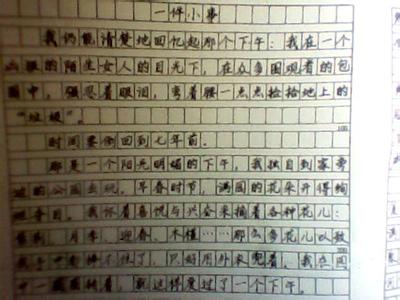 一件小事
我仍能清楚地回忆起那个下午：我在一个
凶狠的陌生女人的目光下，在众多围观者的包
围中，强忍着眼泪，弯着腰一点点捡拾地上的
“垃圾”。
100
时间要倒回到七年前。
那是一个阳光明媚的下午，我独自到家旁
边的公园去玩。早春时节，满园的花朵开得绚
丽夺目。我怀着喜悦与兴奋采摘着各种花儿：
月季、迎春、木槿……那么多花儿以致
我手中都捧不住了，只好用外衣兜着。我在园
中一
就这样度过了一个下午。